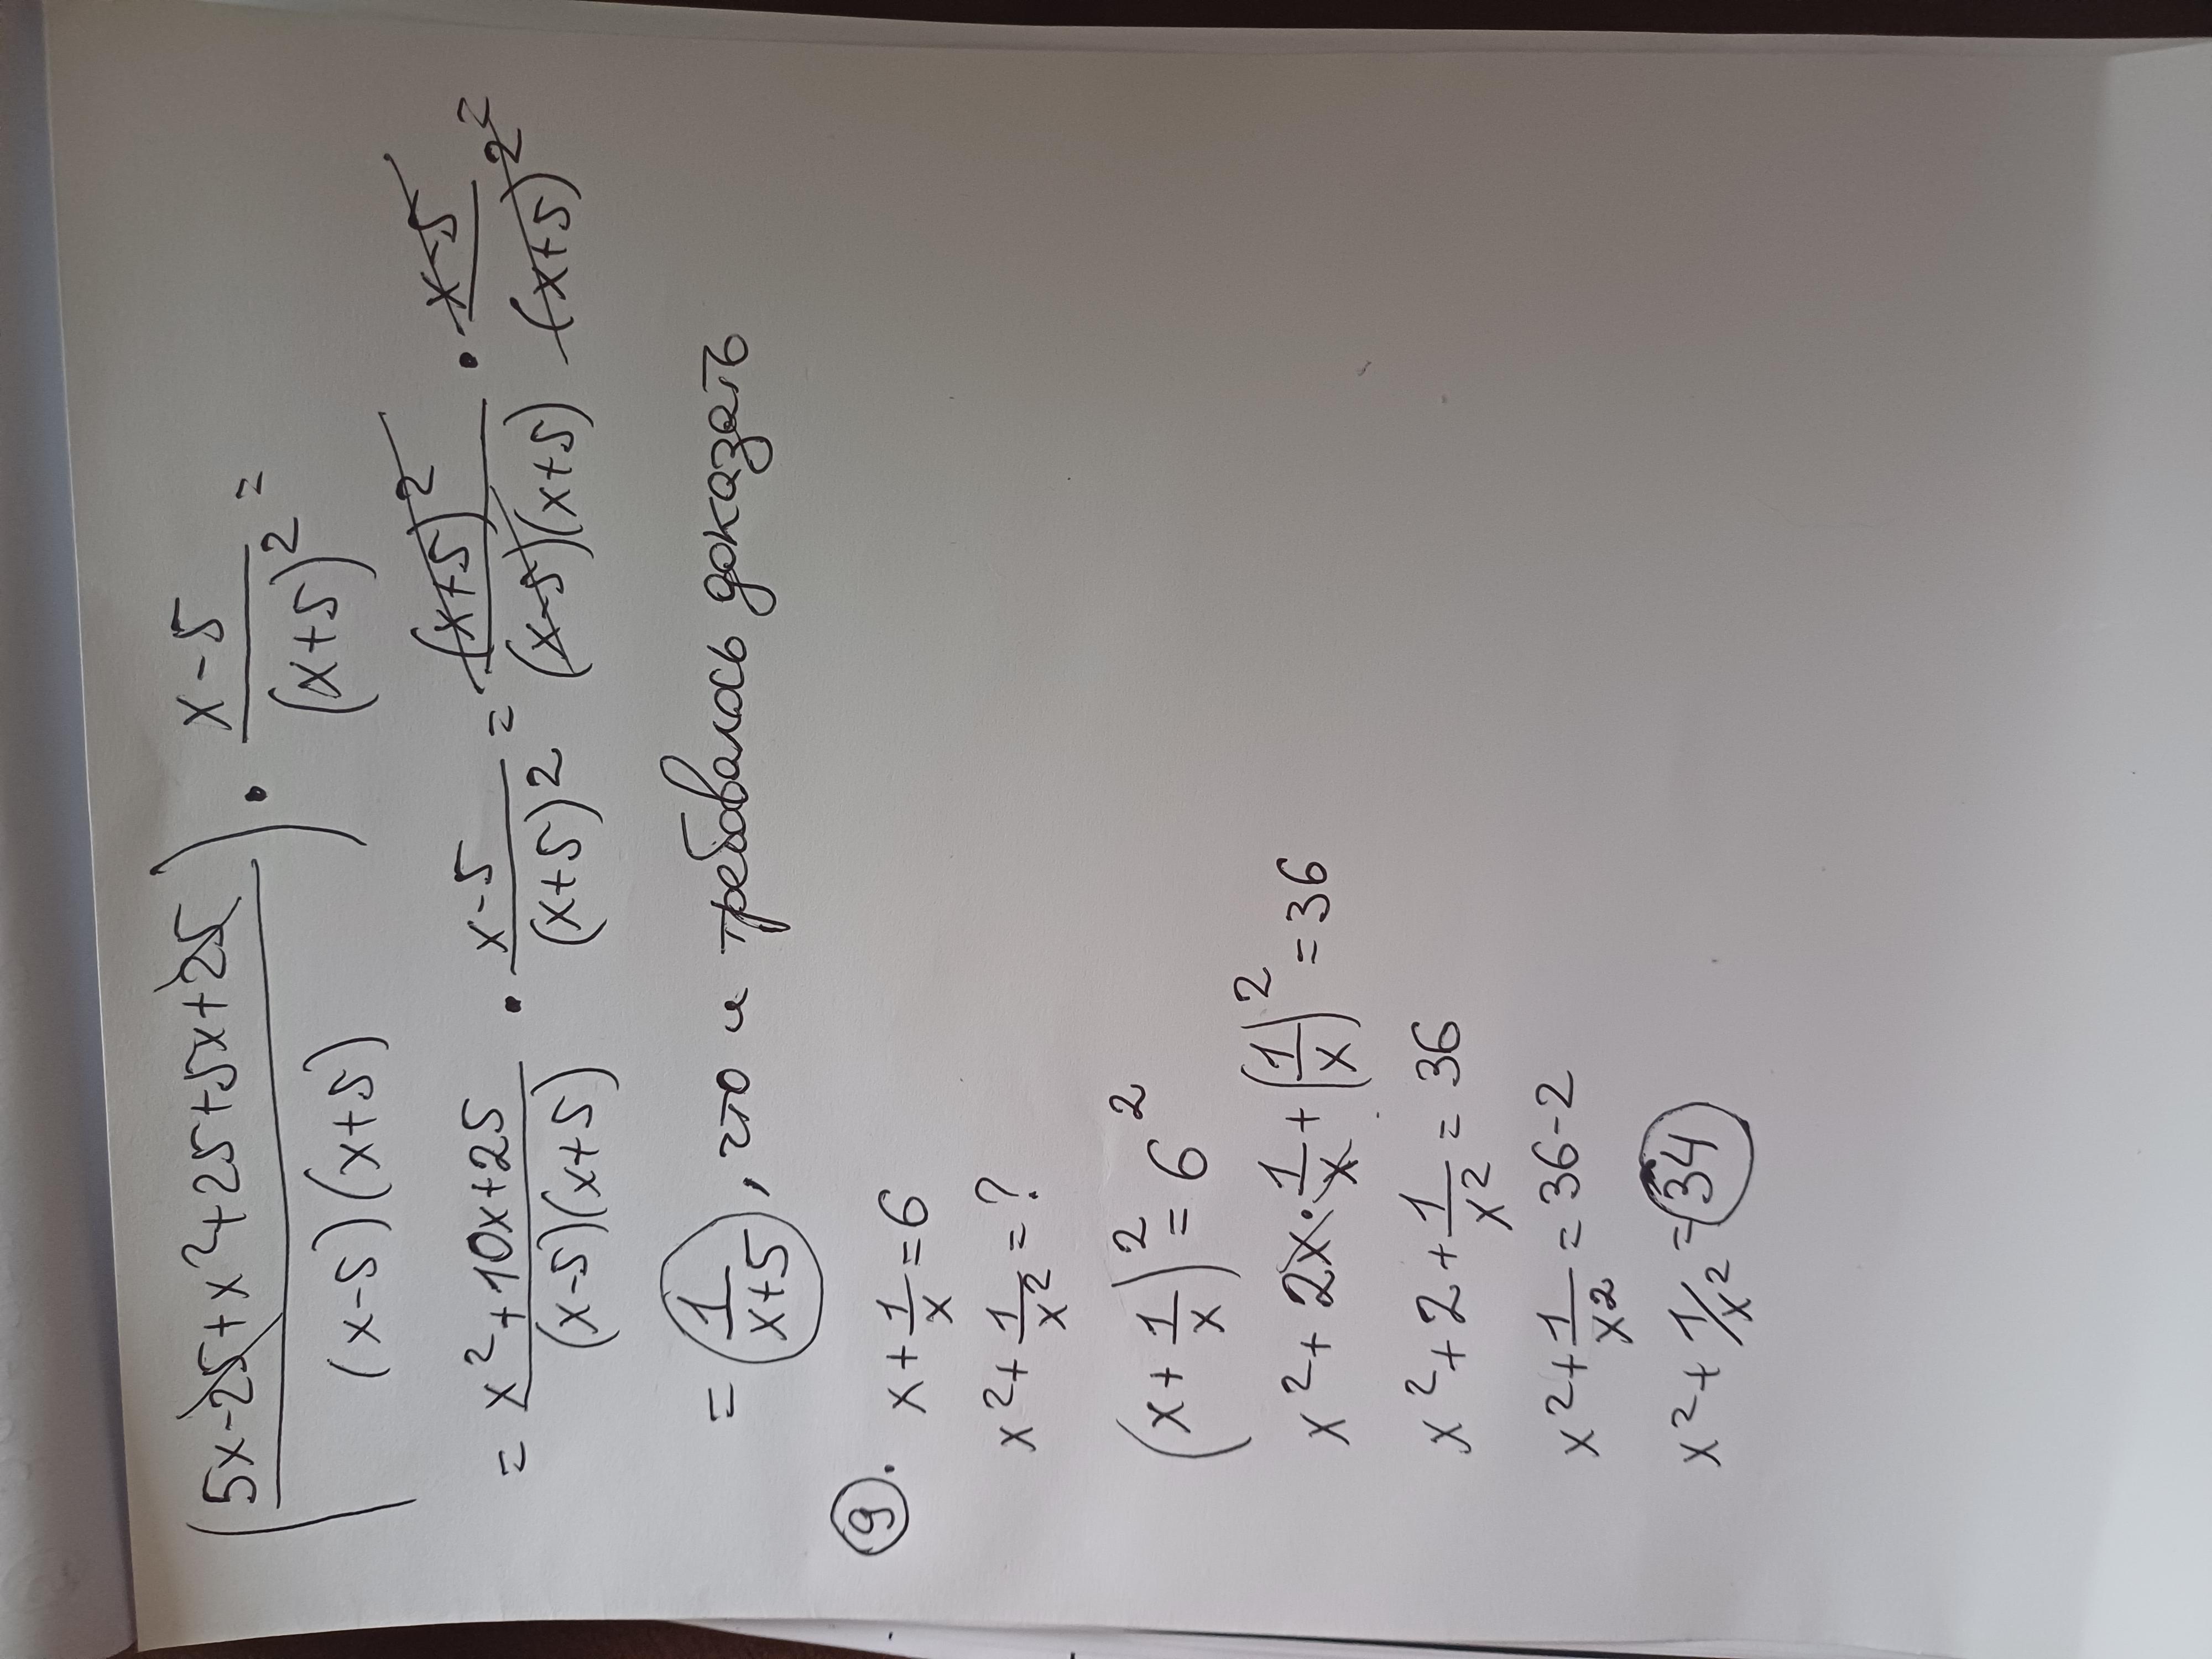 (5x-25+x²+25+5x+25)/((x-5)(x+5)) · (x-5)/(x+5)² =
= (x²+10x+25)/((x-5)(x+5)) · (x-5)/(x+5)² = (x+5)²/((x-5)(x+5)) · (x-5)/(x+5)²
= 1/(x+5), что и требовалось доказать
9. x+1/x=6
x²+1/x²=?
(x+1/x)²=6²
x²+2x·1/x+(1/x)²=36
x²+2+1/x²=36
x²+1/x²=36-2
x²+1/x²=34